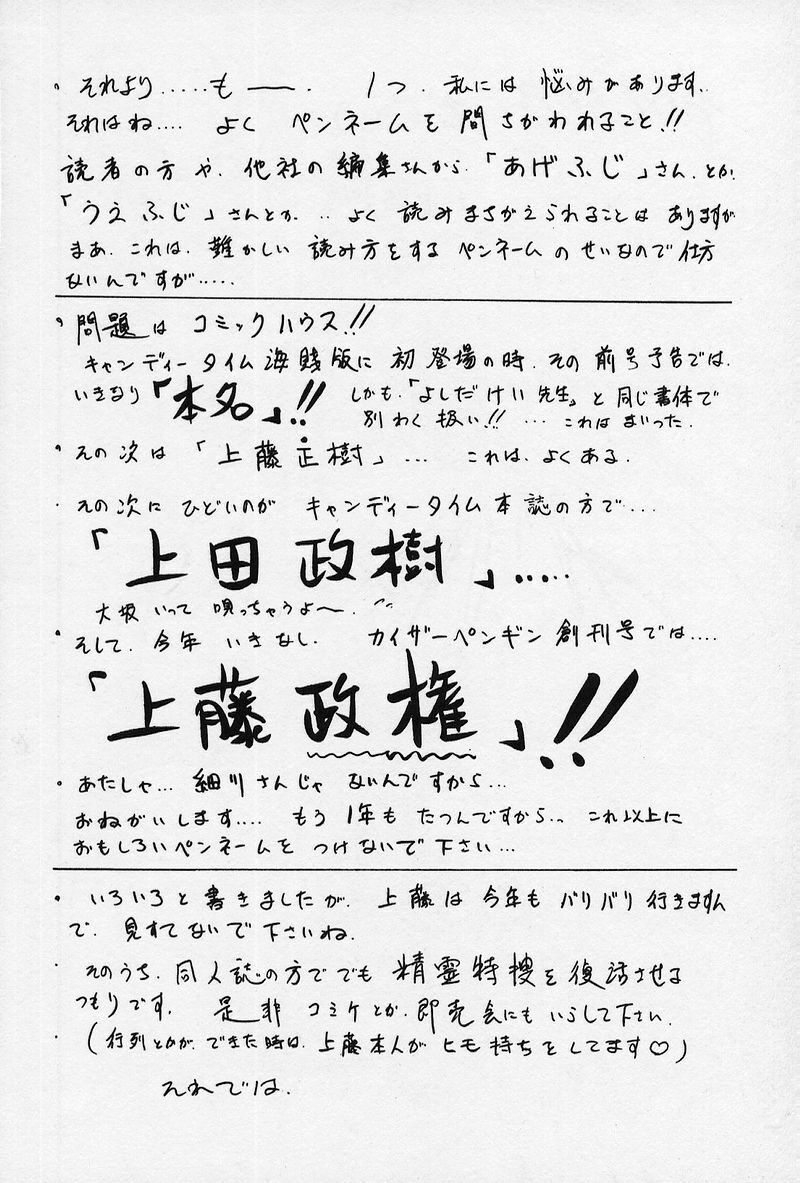 ・それより.....も――. 1つ. 私には 悩みがあります.
それはね.... よく ペンネームを 間ちがわれること!!
読者の方や、他社の編集さんから.「あげふじ」さん.とか.
「うえふじ」さんとか... よく 読みまちがえられることは ありますが
まあ、これは、難かしい 読み方をする ペンネームのせいなので 仕方
ないんですが.....
・問題は コミックハウス!!
キャンディータイム海賊版に 初登場の時、その 前号予告では、
いきなり「本名」!! しかも、「よしだけい先生」と同じ書体で
別わく扱い!! ... これは まいった.
・その次は「上藤正樹」... これは、よくある.
・その次に ひどいのが キャンディータイム本誌の方で...
「上田政樹」.....
大坂いって 唄っちゃうよ〜.
・そして、今年 いきなし. カイザーペンギン創刊号では....
「上藤政権」!!
・あたしゃ... 細川さんじゃ ないんですから...
おねがいします.... もう 1年も たつんですから.. これ以上に
おもしろいペンネームを つけないで下さい...
・いろいろと書きましたが、上藤は 今年も バリバリ行きますん
で、見すてないで下さいね.
・そのうち、同人誌の方ででも 精霊特捜を復活させる
つもりです. 是非 コミケとか、即売会にもいらして下さい.
・(行列とかが、できた時は、上藤本人が ヒモ持ちをしてます♡)
それでは.